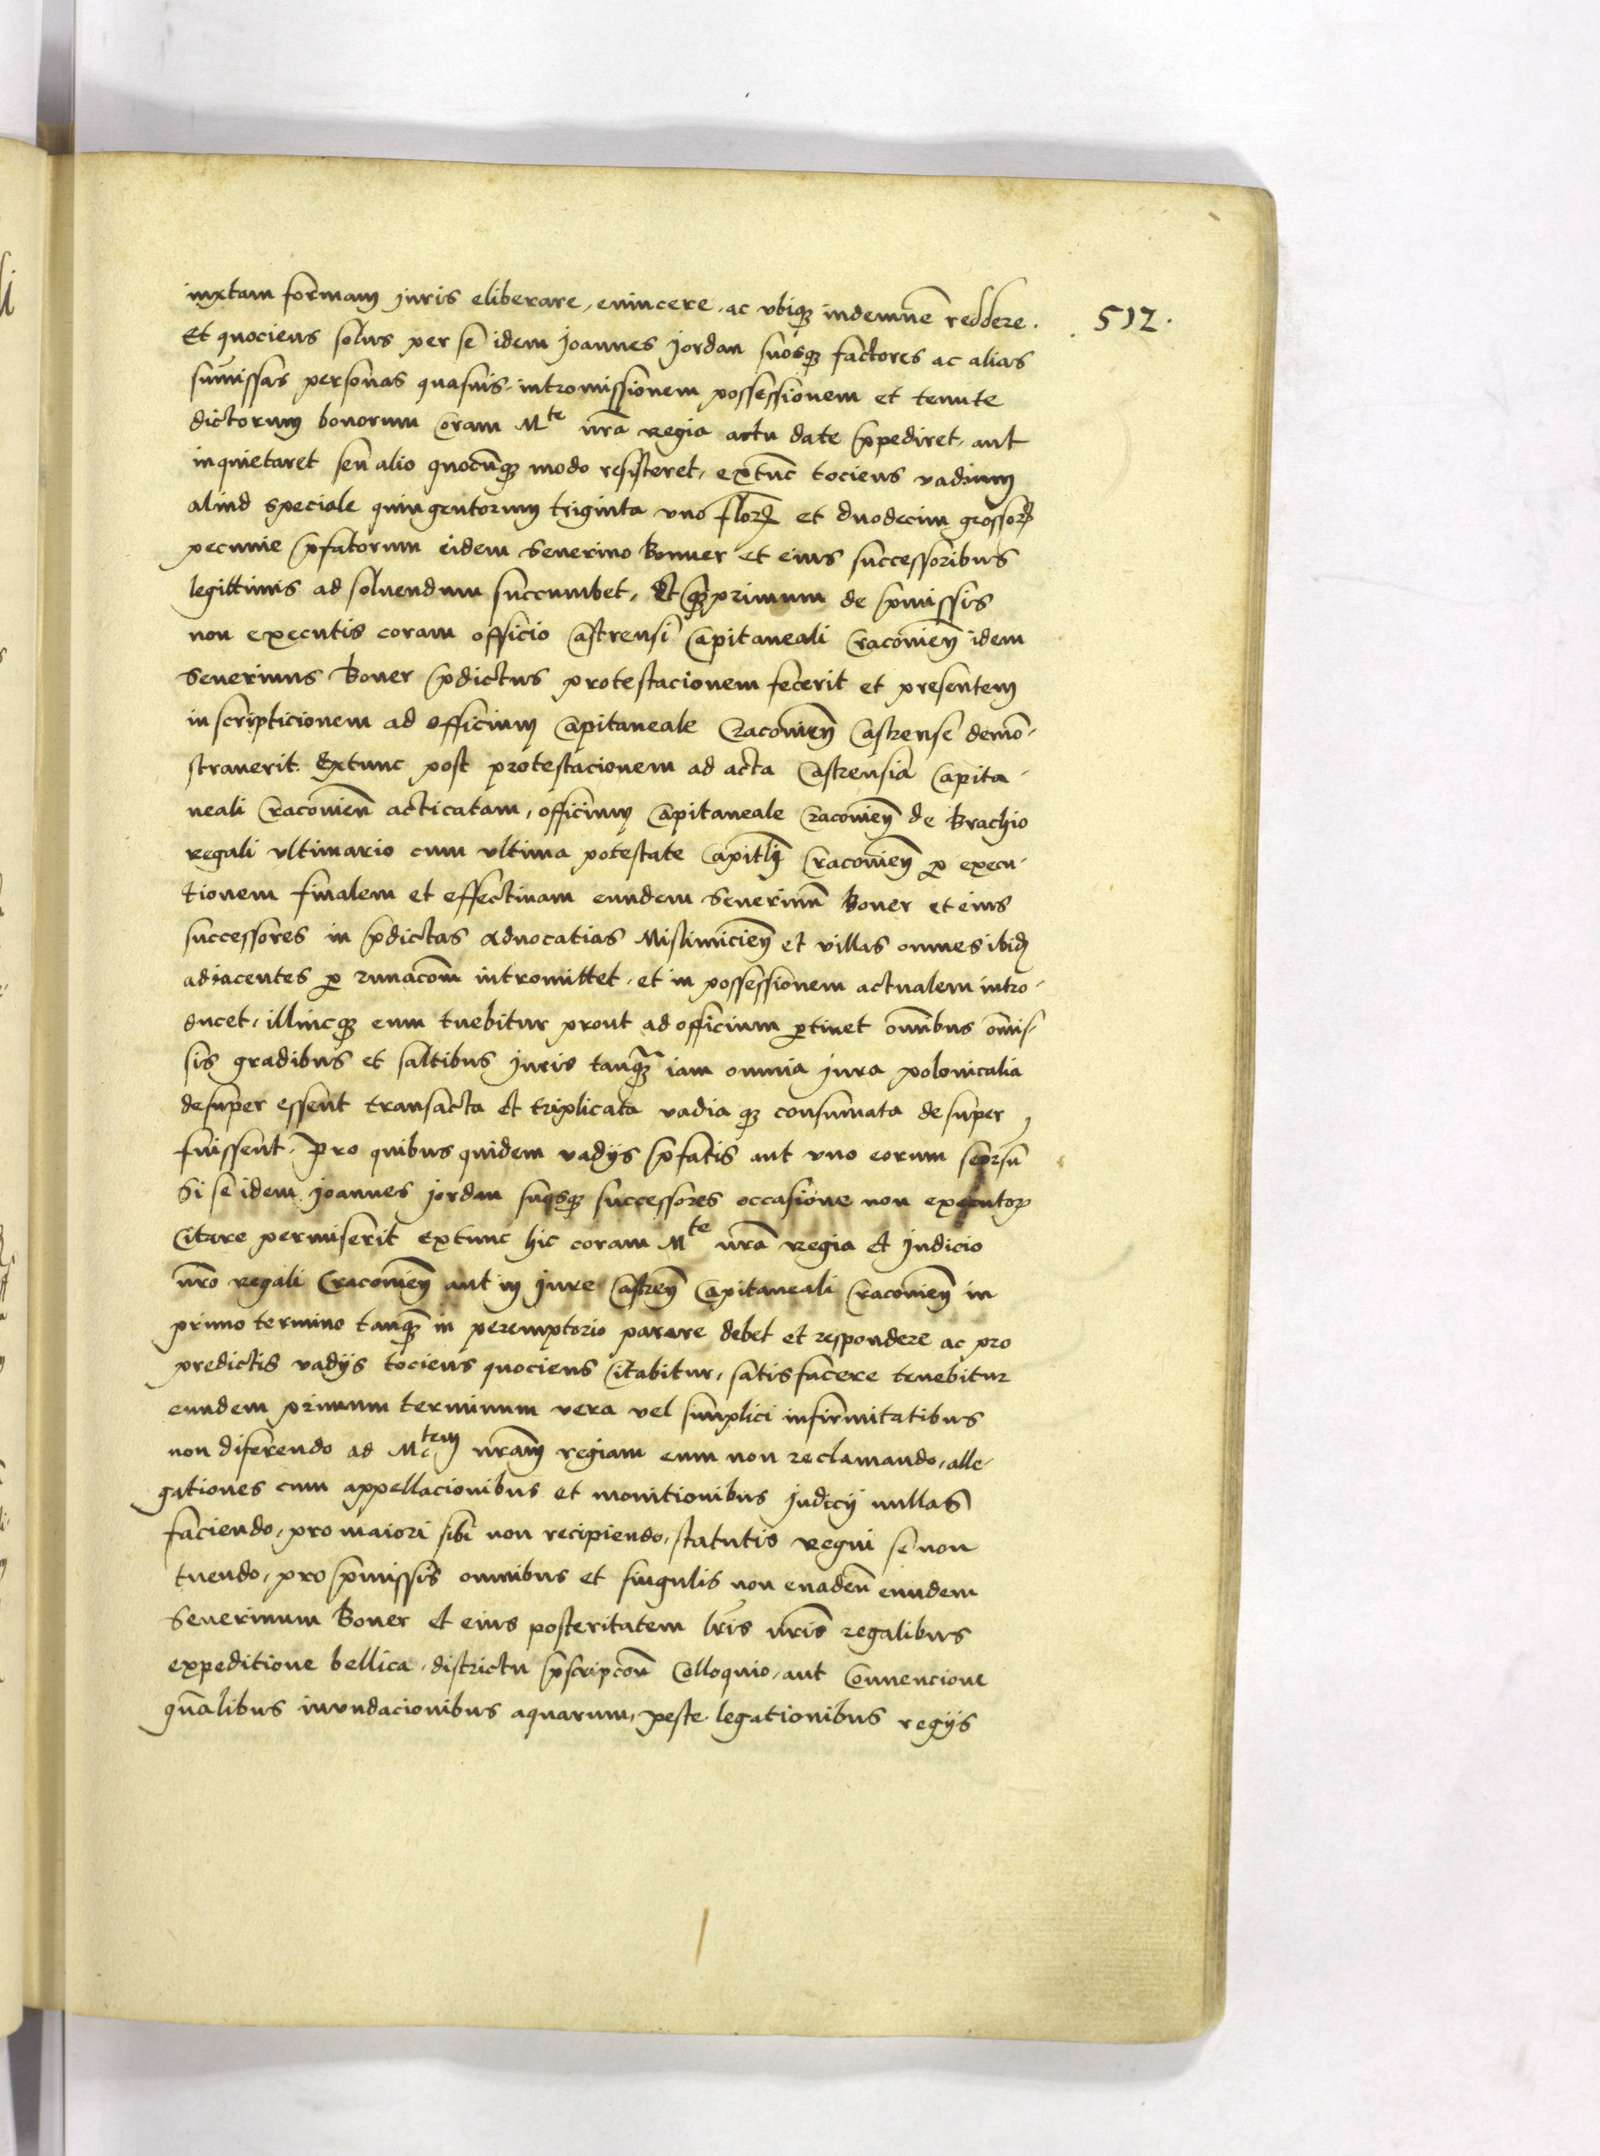 iuxtam formam iuris eliberare, evincere, ac ubiqz indemne reddere.
512.
Et quociens solus per se idem Joannes Jordan suosqz factores ac alias
sumissas personas quasuis, intromissionem possessionem et tenute
dictorum bonorum coram Mte nrã Regia actu date impediret, aut
inquietaret seu alio quocũqz modo resisteret, extũc tociens vadium
aliud speciale quingentorum triginta vno florũ et duodecim grossorũ
pecunie pfatorum eidem Seuerino Bonner et eius successoribus
legittimis ad soluendum succumbet, Et qz primum de pmissis
non executis coram officio Castrensi Capitaneali Cracouien idem
Seuerinus Boner pdictus protestacionem fecerit et presentem
inscripticionem ad officium Capitaneale Cracouien Castrense demõ-
strauerit. Extunc post protestacionem ad acta Castrensia Capita-
neali Cracouien acticatam, officium Capitaneale Cracouien de Brachio
regali vltimario cum vltima potestate Capitlĩ Cracouien p execu-
tionem finalem et effectiuam eundem Seuerinũ Boner et eius
successores in pdictas Aduocatias Mislimicien et villas omnes ibid
adiacentes p intromittet, et in possessionem actualem intro-
ducet, illincqz eum tuebitur prout ad officium ptinet omĩbus omis-
sis gradibus et saltibus Juris tanqz iam omnia Jura polonicalia
desuper essent transacta et triplicata vadia qz consumata desuper
fuissent. Pro quibus quidem vadijs pfatis aut vno eorum seorsũ
Si se idem Joannes Jordan suqsqz successores occasione non executor
Citare permiserit extunc hic coram Mte nrã Regia et Judicio
nrõ Regali Cracouien aut in Jure Castren Capitaneali Cracouien in
primo termino tanqz in peremptorio parare debet et respondere ac pro
predictis vadijs tociens quociens Citabitur, satisfacere tenebitur
eundem primum terminum vera vel simplici infirmitatibus
non diferendo ad Mtem nrãm regiam eum non reclamando, alle-
gationes cum appellacionibus et monitionibus Judicij nullas
faciendo, pro maiori sibi non recipiendo, statutis Regni se non
tuendo, pro pmissis omnibus et singulis non euaden eundem
Seuerinum Boner et eius posteritatem lris nris regalibus
expeditione bellica, districtu pscripcon Colloquio, aut Conuencione
gnãlibus inundacionibus aquarum, peste legationibus regijs